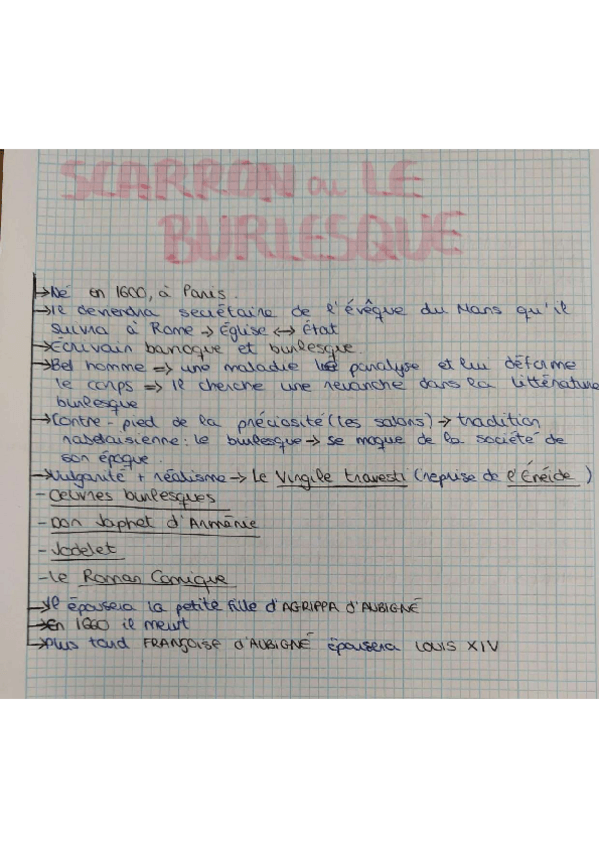 SCARRON ou LE
BURLESQUE
→ Né en 1600, à Paris.
→ Il deviendra secrétaire de l'évêque du Mans qu'il
suivra à Rome → Église ↔ État
→ Écrivain baroque et burlesque.
→ Bel homme => une maladie paralyse et lui déforme
le corps => Il cherche une revanche dans la littérature
burlesque
→ Contre-pied de la préciosité (les salons) → tradition
rabelaisienne : le burlesque → se moque de la société de
son époque.
→ Vulgarité + réalisme → Le Virgile travesti (reprise de l'Énéide)
- Oeuvres burlesques
- Don Japhet d'Arménie
- Jodelet
- Le Roman Comique
→ Il épousera la petite fille d'AGRIPPA d'AUBIGNÉ
→ En 1660 il meurt
→ Plus tard FRANÇOISE d'AUBIGNÉ épousera LOUIS XIV